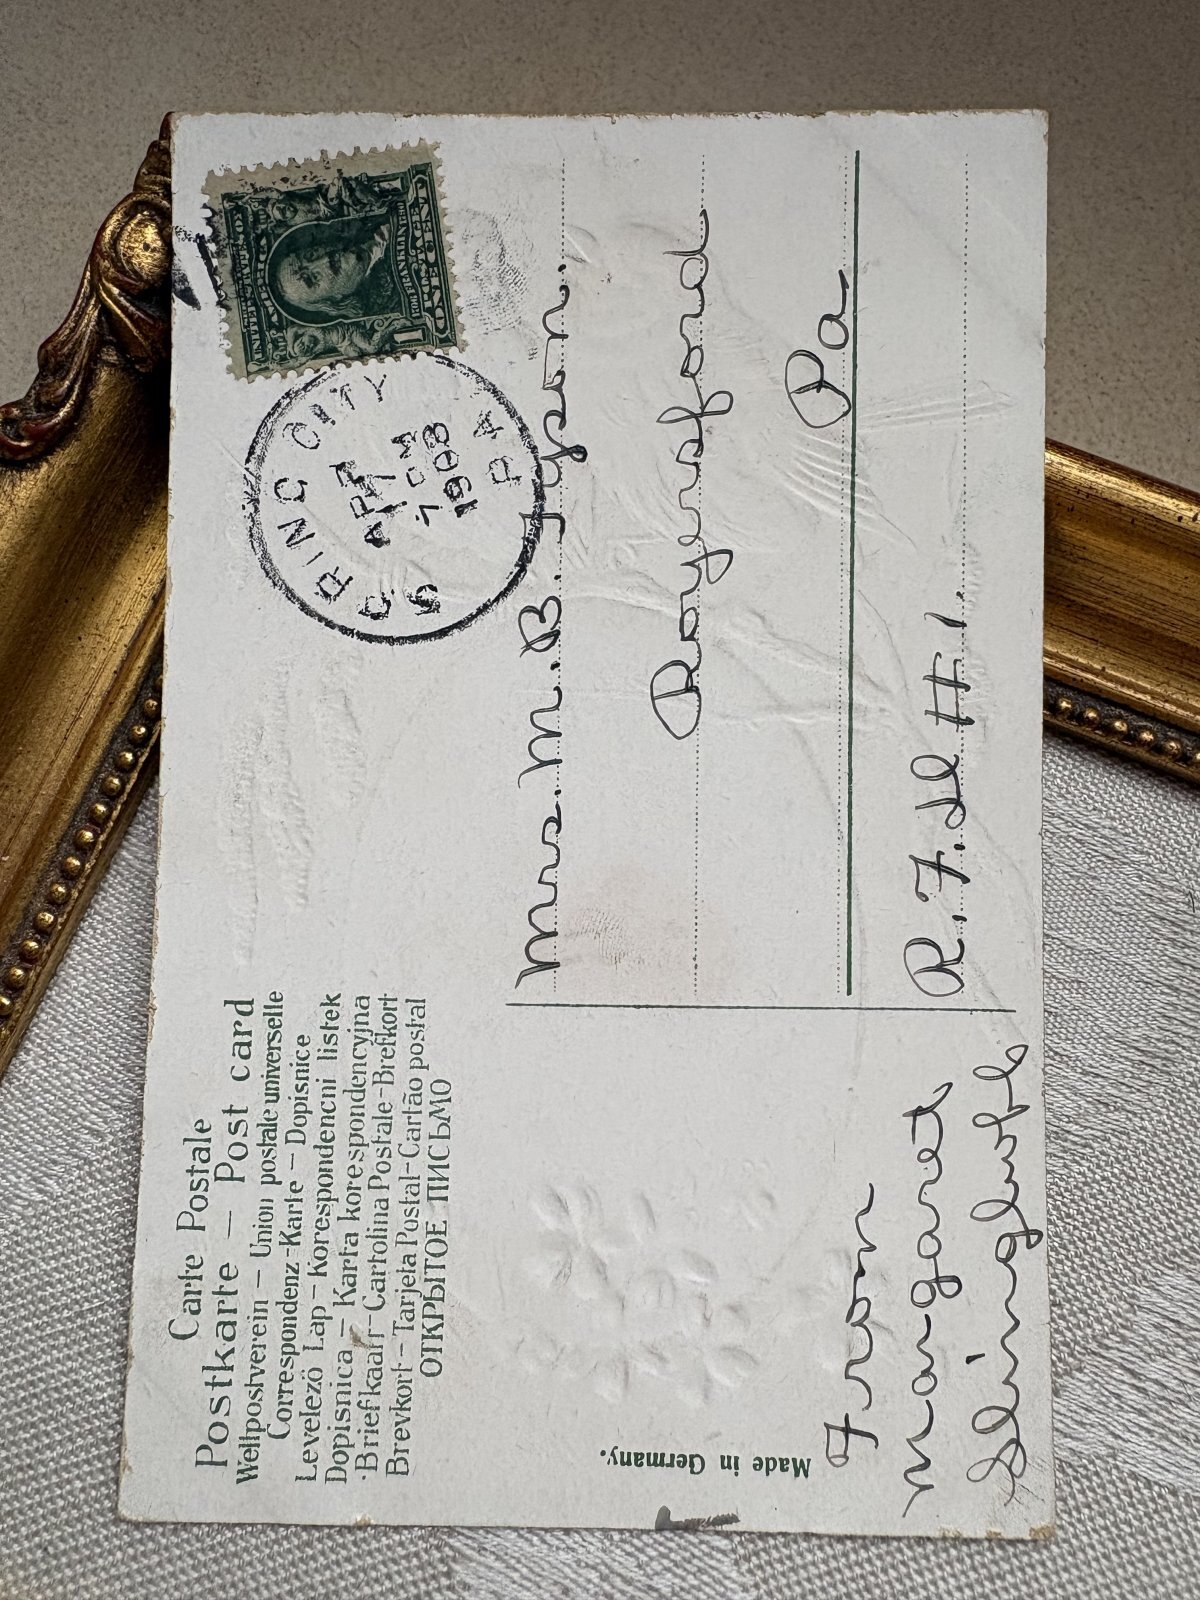 Carte Postale
Postkarte – Post card
Weltpostverein – Union postale universelle
Correspondenz-Karte – Dopisnice
Levelező Lap – Korespondencni listek
Dopisnica – Karta korespondencyjna
Briefkaart – Cartolina Postale – Brefkort
Brevkort – Tarjeta Postal – Cartão postal
ОТКРЫТОЕ ПИСЬМО
SPRING CITY
APR
7
1908
PA
ONE CENT
1
Mrs. M. B. Tyson.
Royersford
Pa
R. F. D # 1.
Made in Germany.
From
Margaret
Slingluff